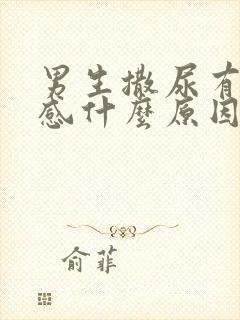 男生撒尿有
感什麼原因
俞菲